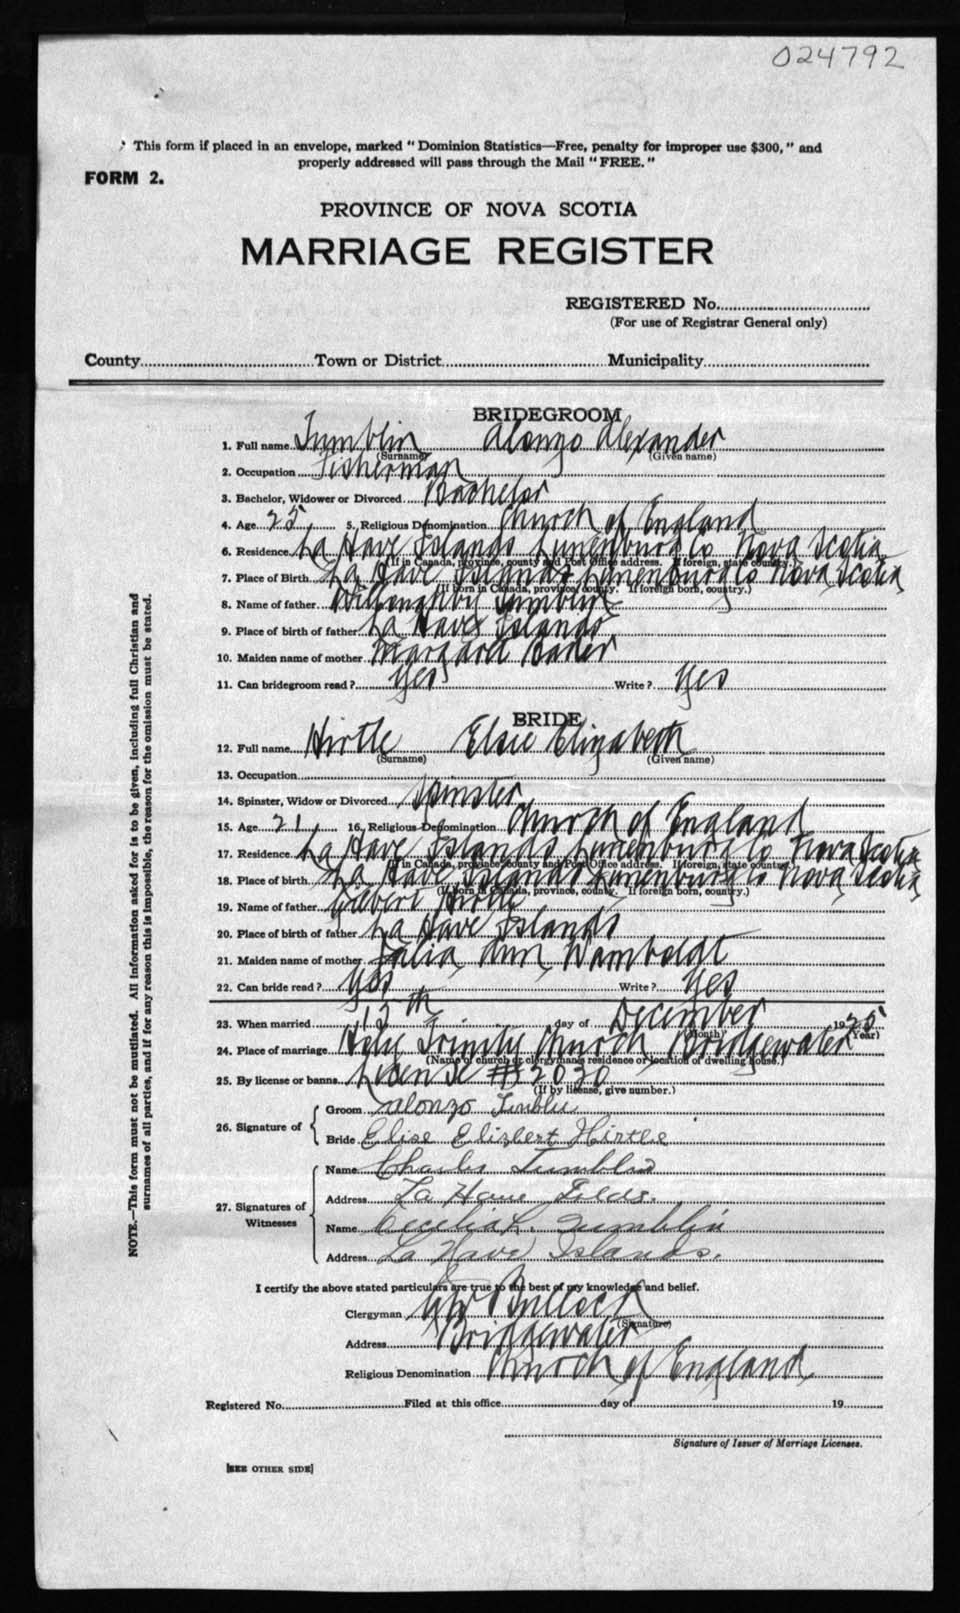 024792
This form if placed in an envelope, marked "Dominion Statistics—Free, penalty for improper use $300," and
properly addressed will pass through the Mail "FREE."
FORM 2.
PROVINCE OF NOVA SCOTIA
MARRIAGE REGISTER
REGISTERED No.
(For use of Registrar General only)
County Town or District Municipality
BRIDEGROOM
1. Full name Tumblin Alonzo Alexander
(Surname) (Given name)
2. Occupation Fisherman
3. Bachelor, Widower or Divorced Bachelor
4. Age 25 5. Religious Denomination Church of England
6. Residence La Have Islands Lunenburg Co Nova Scotia
(If in Canada, province, county and Post Office address. If foreign, state country.)
7. Place of Birth La Have Islands Lunenburg Co Nova Scotia
(If born in Canada, province, county. If foreign born, country.)
8. Name of father Willoughby Tumblin
9. Place of birth of father La Have Islands
10. Maiden name of mother
11. Can bridegroom read? Yes Write? Yes
BRIDE
12. Full name Hirtle Elsie Elizabeth
(Surname) (Given name)
13. Occupation
14. Spinster, Widow or Divorced Spinster
15. Age 21 16. Religious Denomination Church of England
17. Residence La Have Islands Lunenburg Co Nova Scotia
(If in Canada, province, county and Post Office address. If foreign, state country.)
18. Place of birth La Have Islands Lunenburg Co Nova Scotia
(If born in Canada, province, county. If foreign born, country.)
19. Name of father Gilbert Hirtle
20. Place of birth of father La Have Islands
21. Maiden name of mother Ann Wamboldt
22. Can bride read? Yes Write? Yes
23. When married 13th day of December 1925
(Month) (Year)
24. Place of marriage Holy Trinity Church Bridgewater
(Name of church or clergyman's residence or location of dwelling house.)
25. By license or banns License #2030
(If by license, give number.)
26. Signature of
Groom Alonzo
Bride Elise Elizbert Hirtle
27. Signatures of Witnesses
Name Charles Tumblin
Address La Have
Name Cecelia L. Tumblin
Address La Have Islands.
I certify the above stated particulars are true to the best of my knowledge and belief.
Clergyman Bullock
(Signature)
Address Bridgewater
Religious Denomination Church of England
Registered No. Filed at this office day of 19
Signature of Issuer of Marriage Licenses.
[SEE OTHER SIDE]
NOTE.—This form must not be mutilated. All information asked for is to be given, including full Christian and
surnames of all parties, and if for any reason this is impossible, the reason for the omission must be stated.